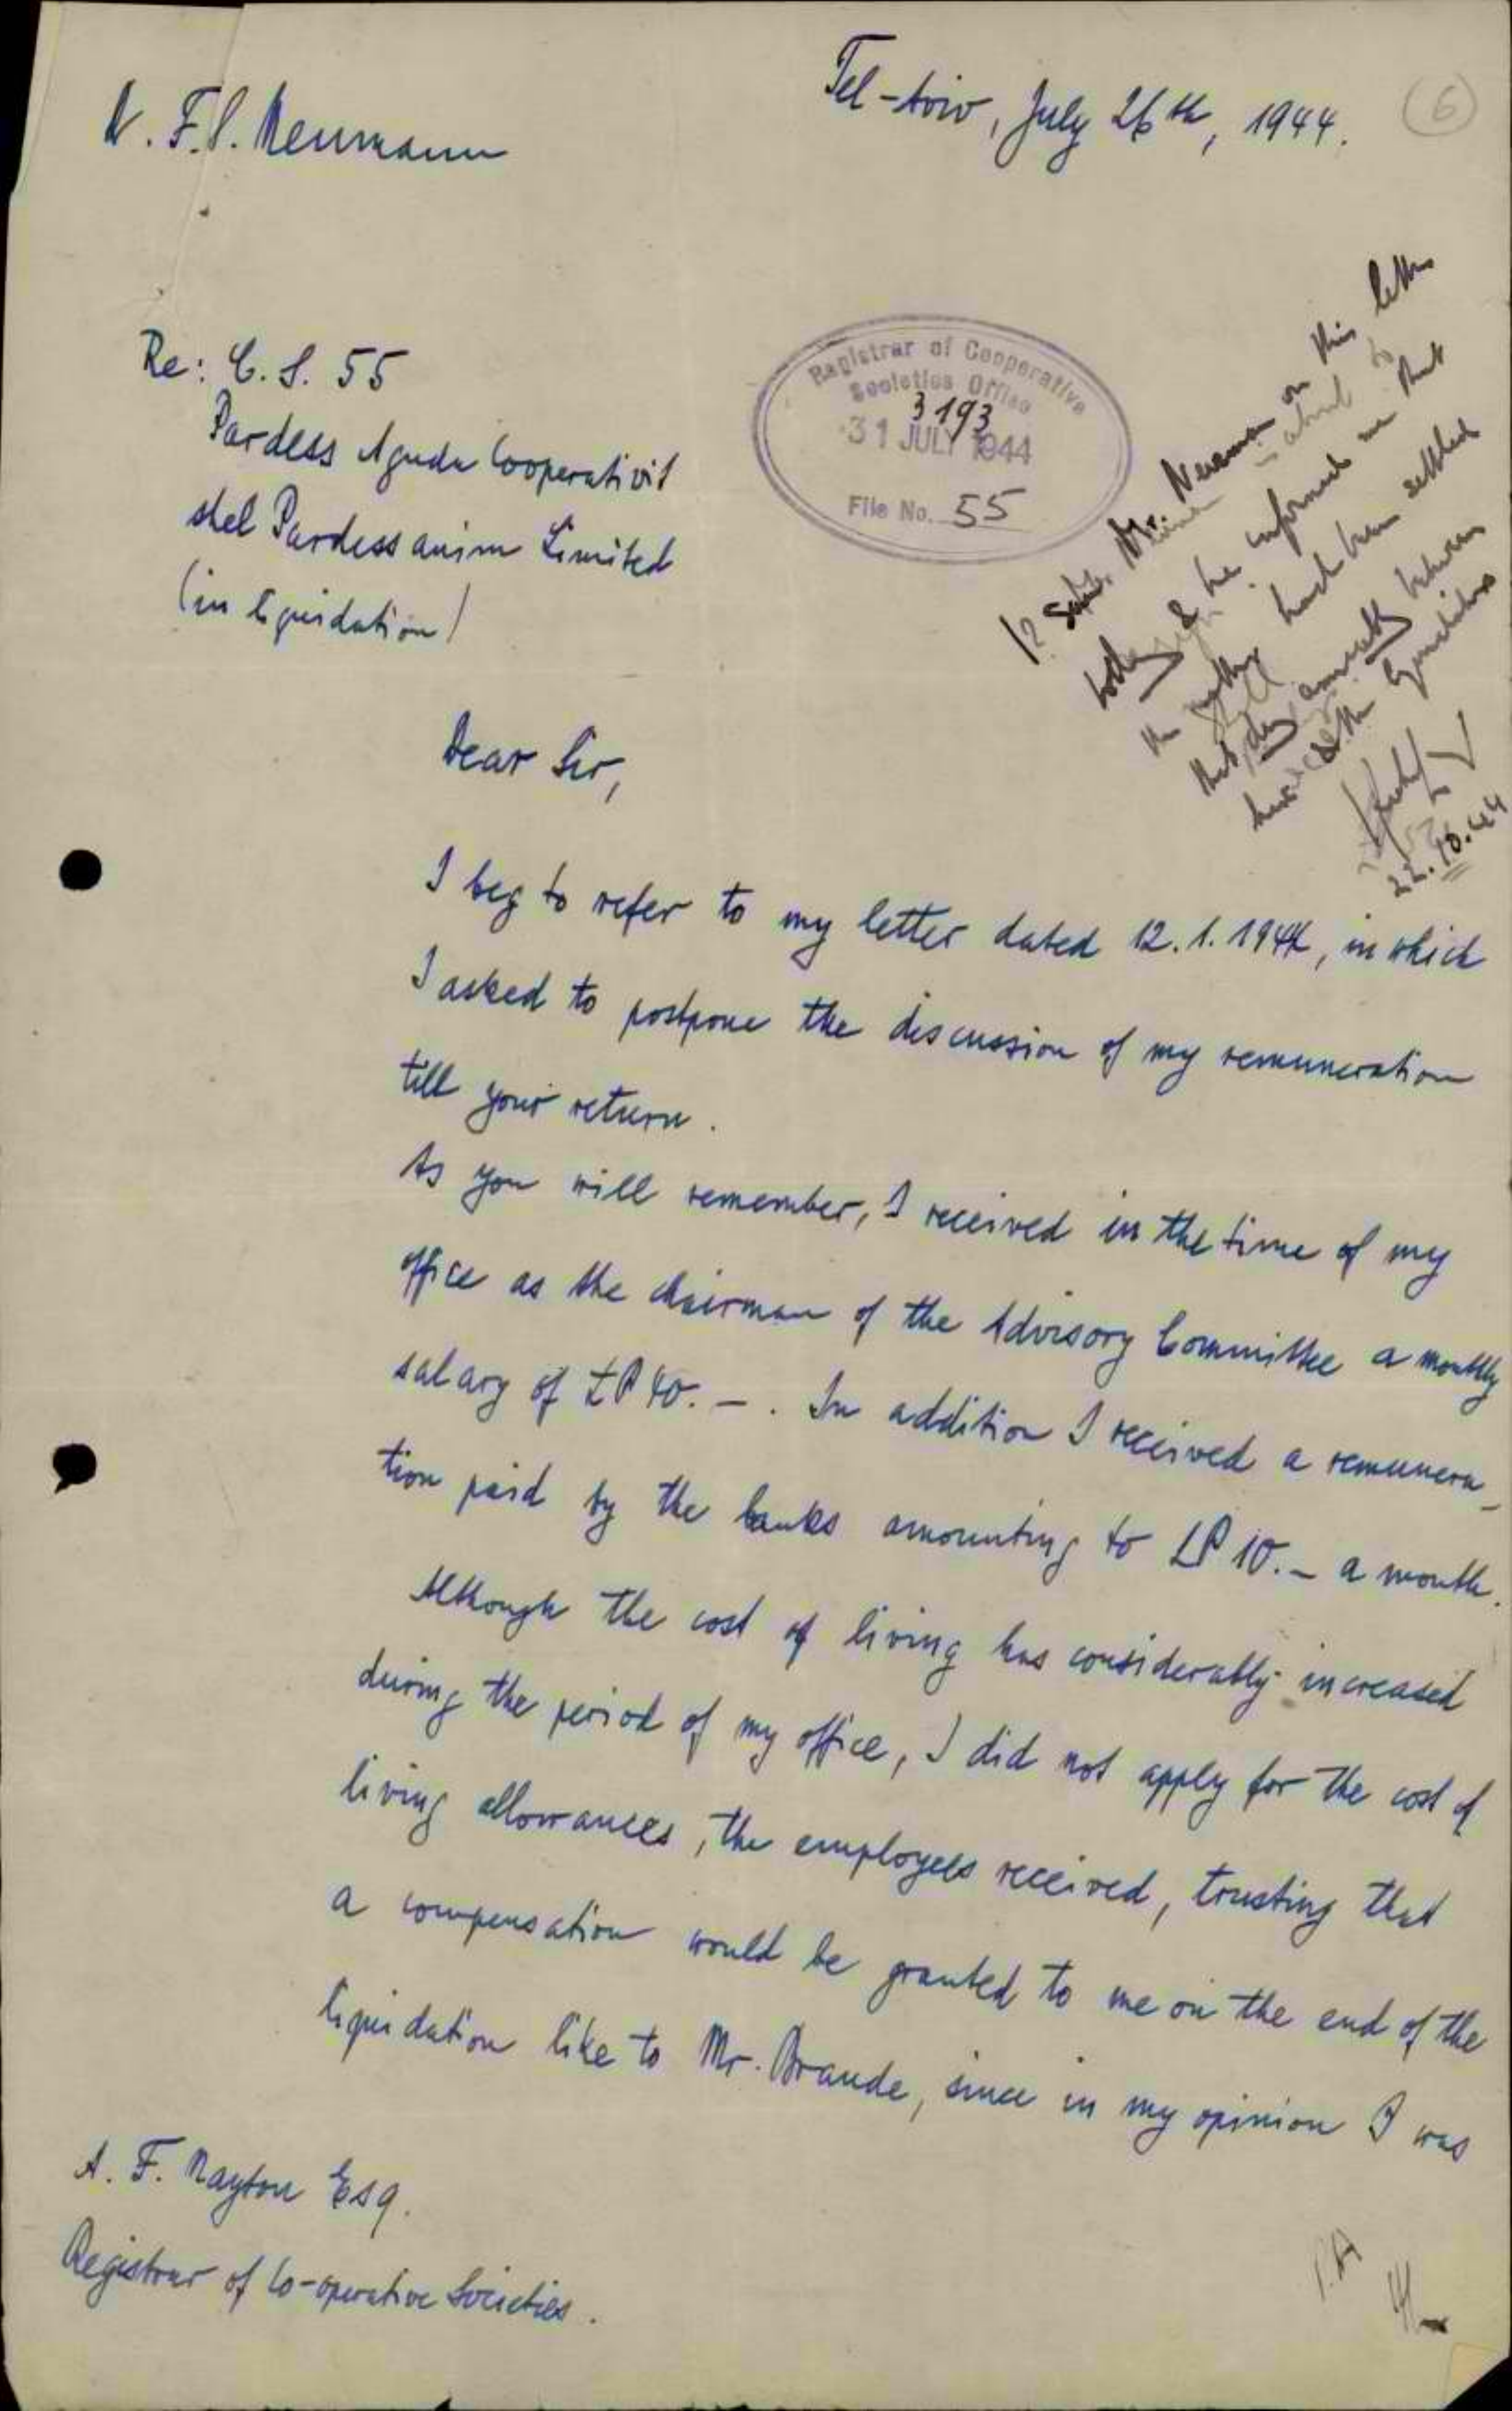 Tel-Aviv, July 26th, 1944.
(6)
F. P. Neumann
Re: C. S. 55
Pardess Aguda Cooperativit
shel Pardessanim Limited
(in liquidation)
Registrar of Cooperative
Societies Office
3193
31 JULY 1944
File No. 55
Mr. Neuman on this letter
today & he informed me that
the matter had been settled
that day amicably between
the liquidators
22.10.44
Dear Sir,
I beg to refer to my letter dated 12.1.1944, in which
I asked to postpone the discussion of my remuneration
till your return.
As you will remember, I received in the time of my
office as the chairman of the Advisory Committee a monthly
salary of £P 40.-. In addition I received a remunera-
tion paid by the banks amounting to LP 10.- a month.
Although the cost of living has considerably increased
during the period of my office, I did not apply for the cost of
living allowances, the employees received, trusting that
a compensation would be granted to me on the end of the
liquidation like to Mr. Braude, since in my opinion I was
A. F. Nayton Esq.
Registrar of Co-operative Societies.
P.A